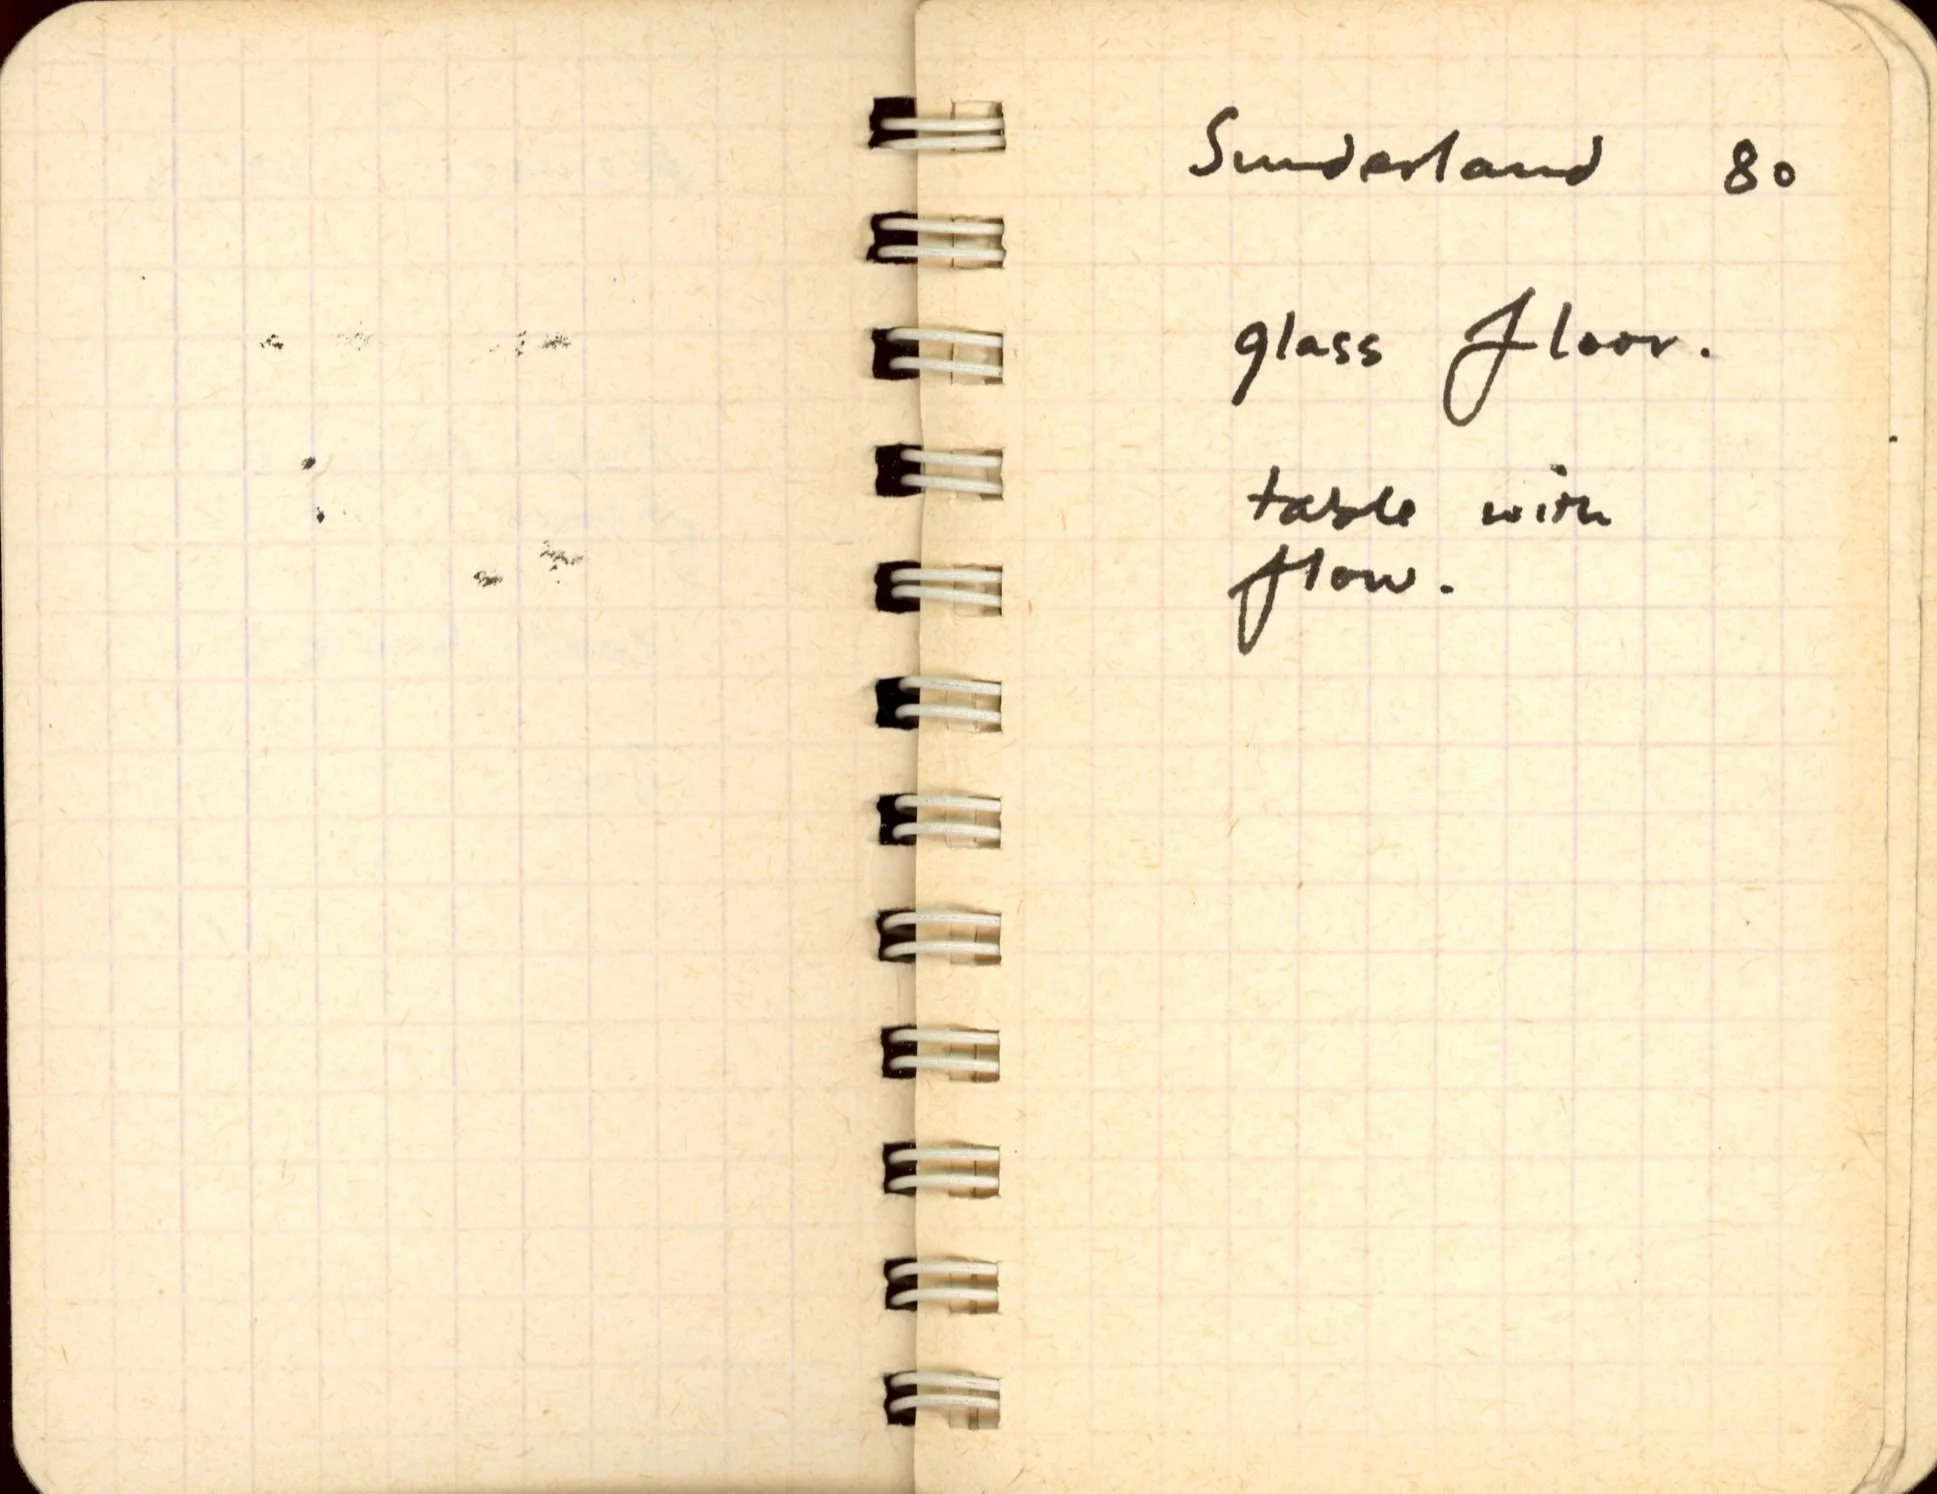 Sunderland 80
glass floor.
table with
flow.